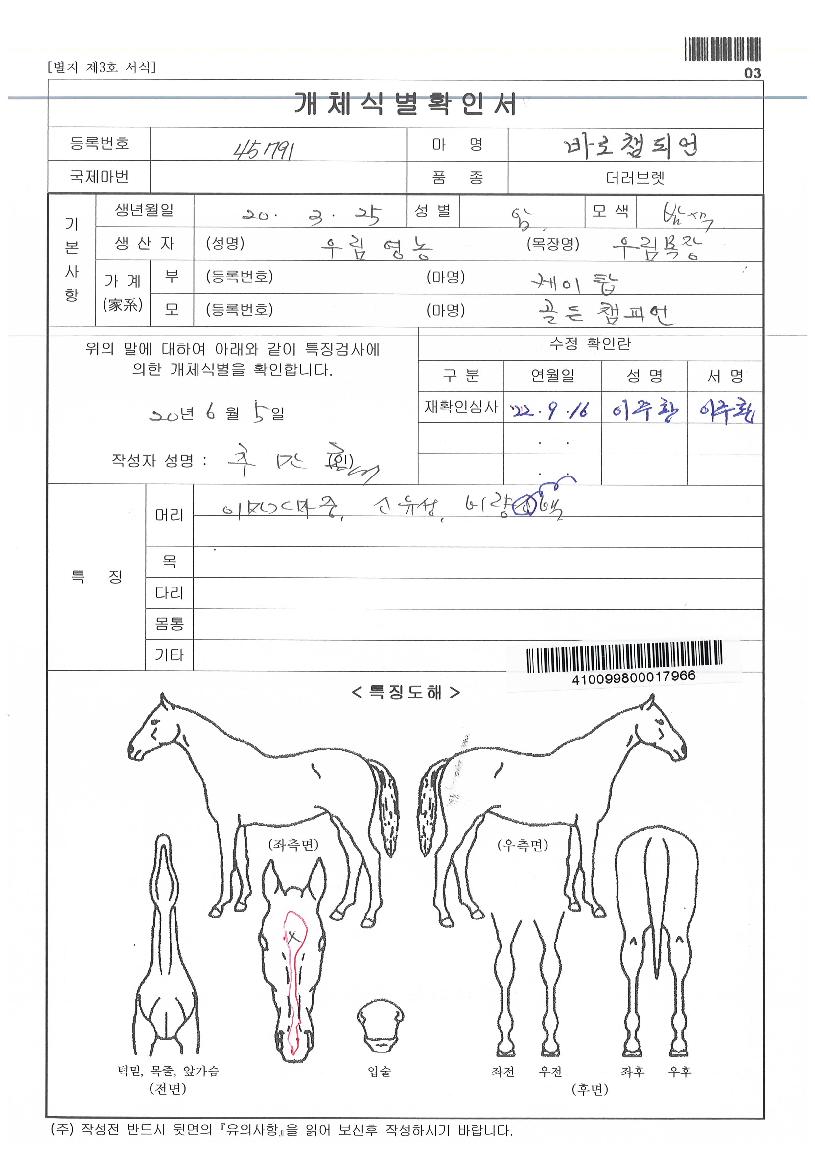 03
[별지 제3호 서식]
개체식별확인서
등록번호 45791 마 명 바로챔피언
국제마번 품 종 더러브렛
기본사항
생년월일 20. 3. 25 성 별 암 모 색 밤색
생 산 자 (성명) 우림영농 (목장명) 우림목장
가 계 (家系) 부 (등록번호) (마명) 제이탑
모 (등록번호) (마명) 골든챔피언
위의 말에 대하여 아래와 같이 특징검사에
의한 개체식별을 확인합니다.
20년 6월 5일
작성자 성명 : (인)
수정 확인란
구 분 연월일 성 명 서 명
재확인심사 '22. 9. 16 이주환 이주환
. .
. .
특 징
머리
목
다리
몸통
기타
410099800017966
< 특징도해 >
(좌측면) (우측면)
턱밑, 목줄, 앞가슴 입술 좌전 우전 좌후 우후
(전면) (후면)
(주) 작성전 반드시 뒷면의 『유의사항』을 읽어 보신후 작성하시기 바랍니다.